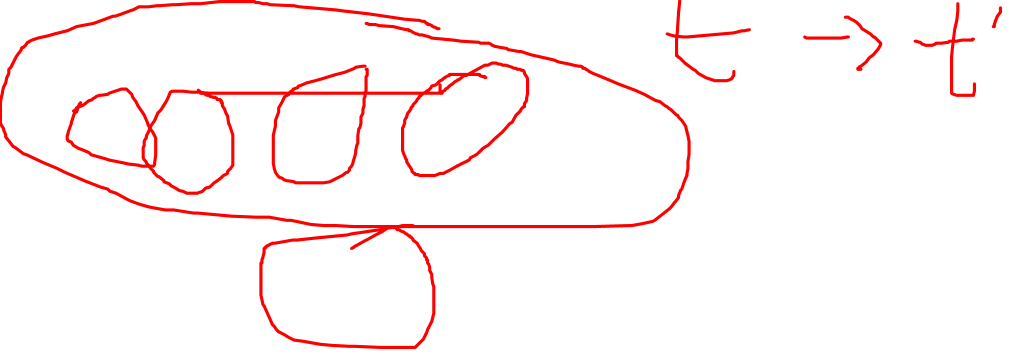 t → t'